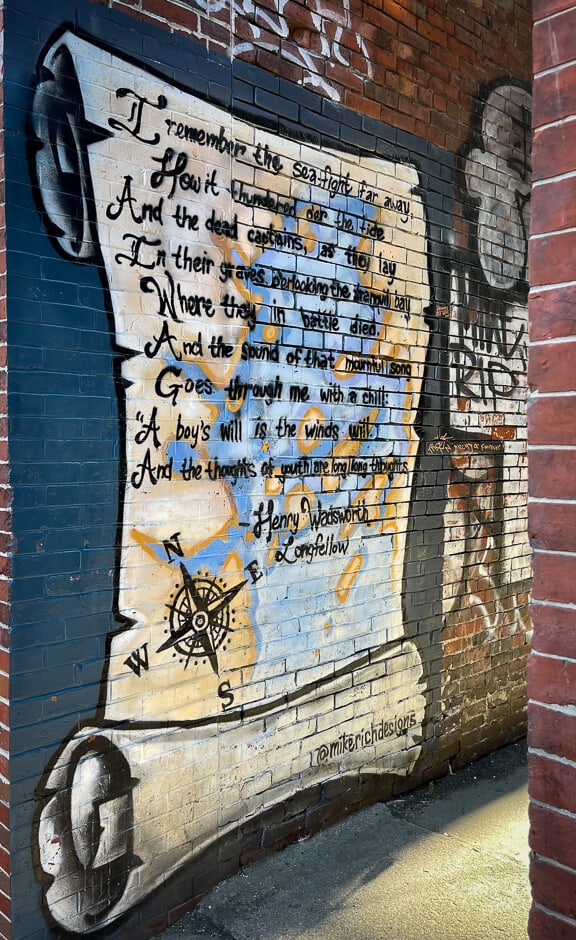 I remember the sea-fight far away,
How it thundered o'er the tide
And the dead captains, as they lay
In their graves o'erlooking the tranquil bay
Where they in battle died.
And the sound of that mournful song
Goes through me with a chill:
"A boy's will is the winds will.
And the thoughts of youth are long, long thoughts
- Henry Wadsworth
Longfellow
N
E
W
S
@mikerichdesigns
RIP